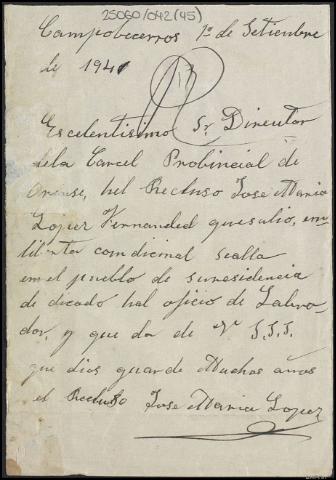 25060/042(45)
Campobecerros 1º de Setiembre
de 1941
Escelentisimo Sr Director
dela Carcel Probincial de
Orense, hel Recluso Jose Maria
Lopez Fernanded quesalio, em
libirta comdicional sealla
em el pueblo de suresidencia
de dicado hal oficio de Labra
dor, y que da de Vº S.S.S.
que dios guarde Muchos años
el Recluso Jose Maria Lopez